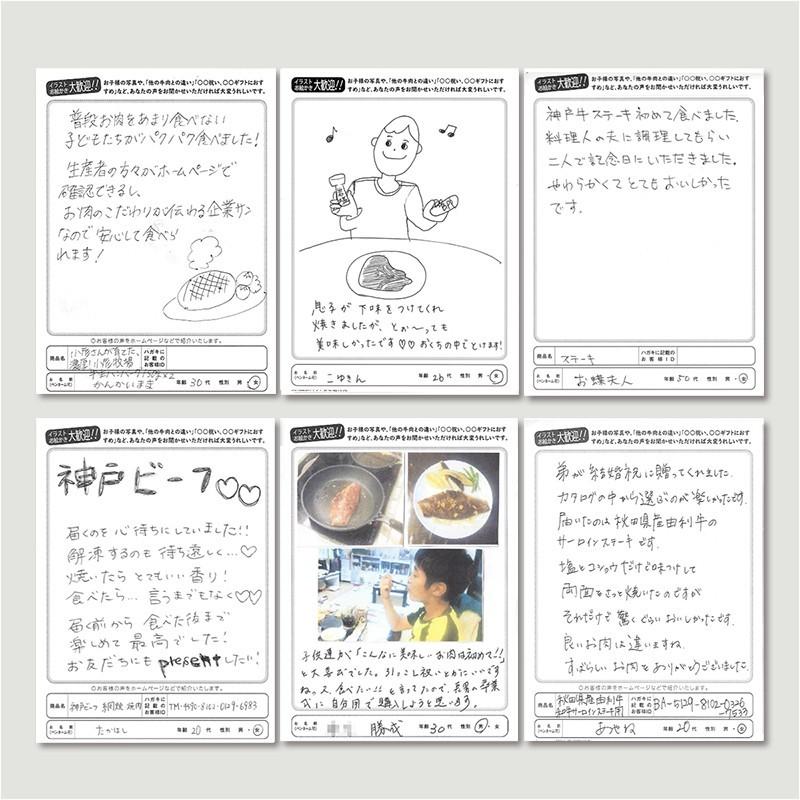 イラスト
お絵かき 大歓迎!! お子様の写真や、「他の牛肉との違い」「○○祝い、○○ギフトにおす
すめ」など、あなたの声をお聞かせいただければ大変うれしいです。
普段お肉をあまり食べない
子どもたちがパクパク食べました!
生産者の方々がホームページで
確認できるし、
お肉のこだわりが伝わる企業サン
なので安心して食べら
れます!
◎お客様の声をホームページなどで紹介いたします。
商品名 小形さんが育てた、
濃厚!小形牧場
ハガキに
記載の
お客様ID
お名前
(ペンネーム可) かんかいまき 年齢 30代 性別 男・女
イラスト
お絵かき 大歓迎!! お子様の写真や、「他の牛肉との違い」「○○祝い、○○ギフトにおす
すめ」など、あなたの声をお聞かせいただければ大変うれしいです。
息子が下味をつけてくれ
焼きましたが、とぉ〜っても
美味しかったです♡♡ おくちの中でとけます!
お名前
(ペンネーム可) こゆきん 年齢 26代 性別 男・女
イラスト
お絵かき 大歓迎!! お子様の写真や、「他の牛肉との違い」「○○祝い、○○ギフトにおす
すめ」など、あなたの声をお聞かせいただければ大変うれしいです。
神戸牛ステーキ初めて食べました。
料理人の夫に調理してもらい
二人で記念日にいただきました。
やわらかくてとてもおいしかった
です。
◎お客様の声をホームページなどで紹介いたします。
商品名 ステーキ ハガキに
記載の
お客様ID
お名前
(ペンネーム可) お蝶夫人 年齢 50代 性別 男・女
イラスト
お絵かき 大歓迎!! お子様の写真や、「他の牛肉との違い」「○○祝い、○○ギフトにおす
すめ」など、あなたの声をお聞かせいただければ大変うれしいです。
神戸ビーフ♡♡
届くのを心待ちにしていました!!
解凍するのも待ち遠しく…♡
焼いたらとてもいい香り!
食べたら…言うまでもなく♡♡
届く前から食べた後まで
楽しめて最高でした!
お友だちにもpresentしたい!
◎お客様の声をホームページなどで紹介いたします。
商品名 神戸ビーフ 網焼 焼肉 ハガキに
記載の
お客様ID
お名前
(ペンネーム可) たかはし 年齢 20代 性別 男・女
イラスト
お絵かき 大歓迎!! お子様の写真や、「他の牛肉との違い」「○○祝い、○○ギフトにおす
すめ」など、あなたの声をお聞かせいただければ大変うれしいです。
子供達が「こんなに美味しいお肉は初めて!!」
と大喜びでした。引っこし祝いとかにいいです
ね。又、食べたい!!と言ってたので、長男の卒業
式に自分用で購入しようと思います。
お名前
(ペンネーム可) 勝成 年齢 30代 性別 男・女
イラスト
お絵かき 大歓迎!! お子様の写真や、「他の牛肉との違い」「○○祝い、○○ギフトにおす
すめ」など、あなたの声をお聞かせいただければ大変うれしいです。
弟が結婚祝に贈ってくれました。
カタログの中から選ぶのが楽しかったです。
届いたのは秋田県産由利牛の
サーロインステーキです。
塩とコショウだけで味つけして
両面をさっと焼いたのですが
それだけで驚くぐらいおいしかったです。
良いお肉は違いますね。
すばらしいお肉をありがとうございました。
◎お客様の声をホームページなどで紹介いたします。
商品名 秋田県産由利牛
和牛サーロインステーキ用 ハガキに
記載の
お客様ID BA-5129-8102-0326
-7533
お名前
(ペンネーム可) あやね 年齢 20代 性別 男・女